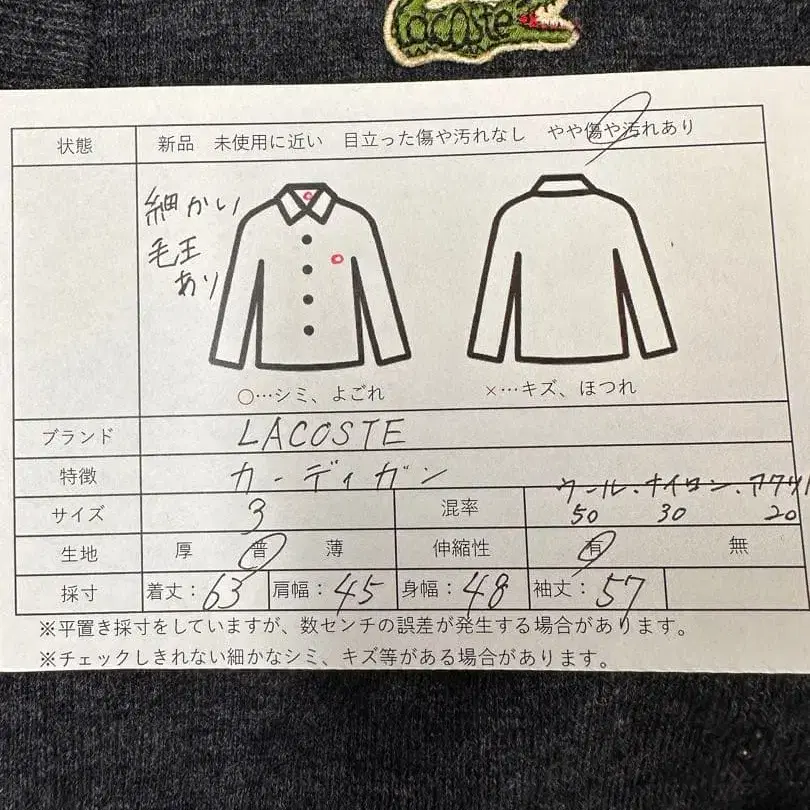 Lacoste
状態 新品 未使用に近い 目立った傷や汚れなし やや傷や汚れあり
細かい
毛玉
あり
○…シミ、よごれ ×…キズ、ほつれ
ブランド LACOSTE
特徴 カーディガン
サイズ 3 混率 ウール・ナイロン・アクリ
50 30 20
生地 厚 普 薄 伸縮性 有 無
採寸 着丈：63 肩幅：45 身幅：48 袖丈：57
※平置き採寸をしていますが、数センチの誤差が発生する場合があります。
※チェックしきれない細かなシミ、キズ等がある場合があります。